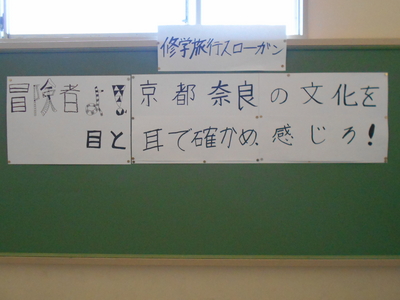 修学旅行スローガン
冒険者よ!京都奈良の文化を
目と耳で確かめ、感じろ!